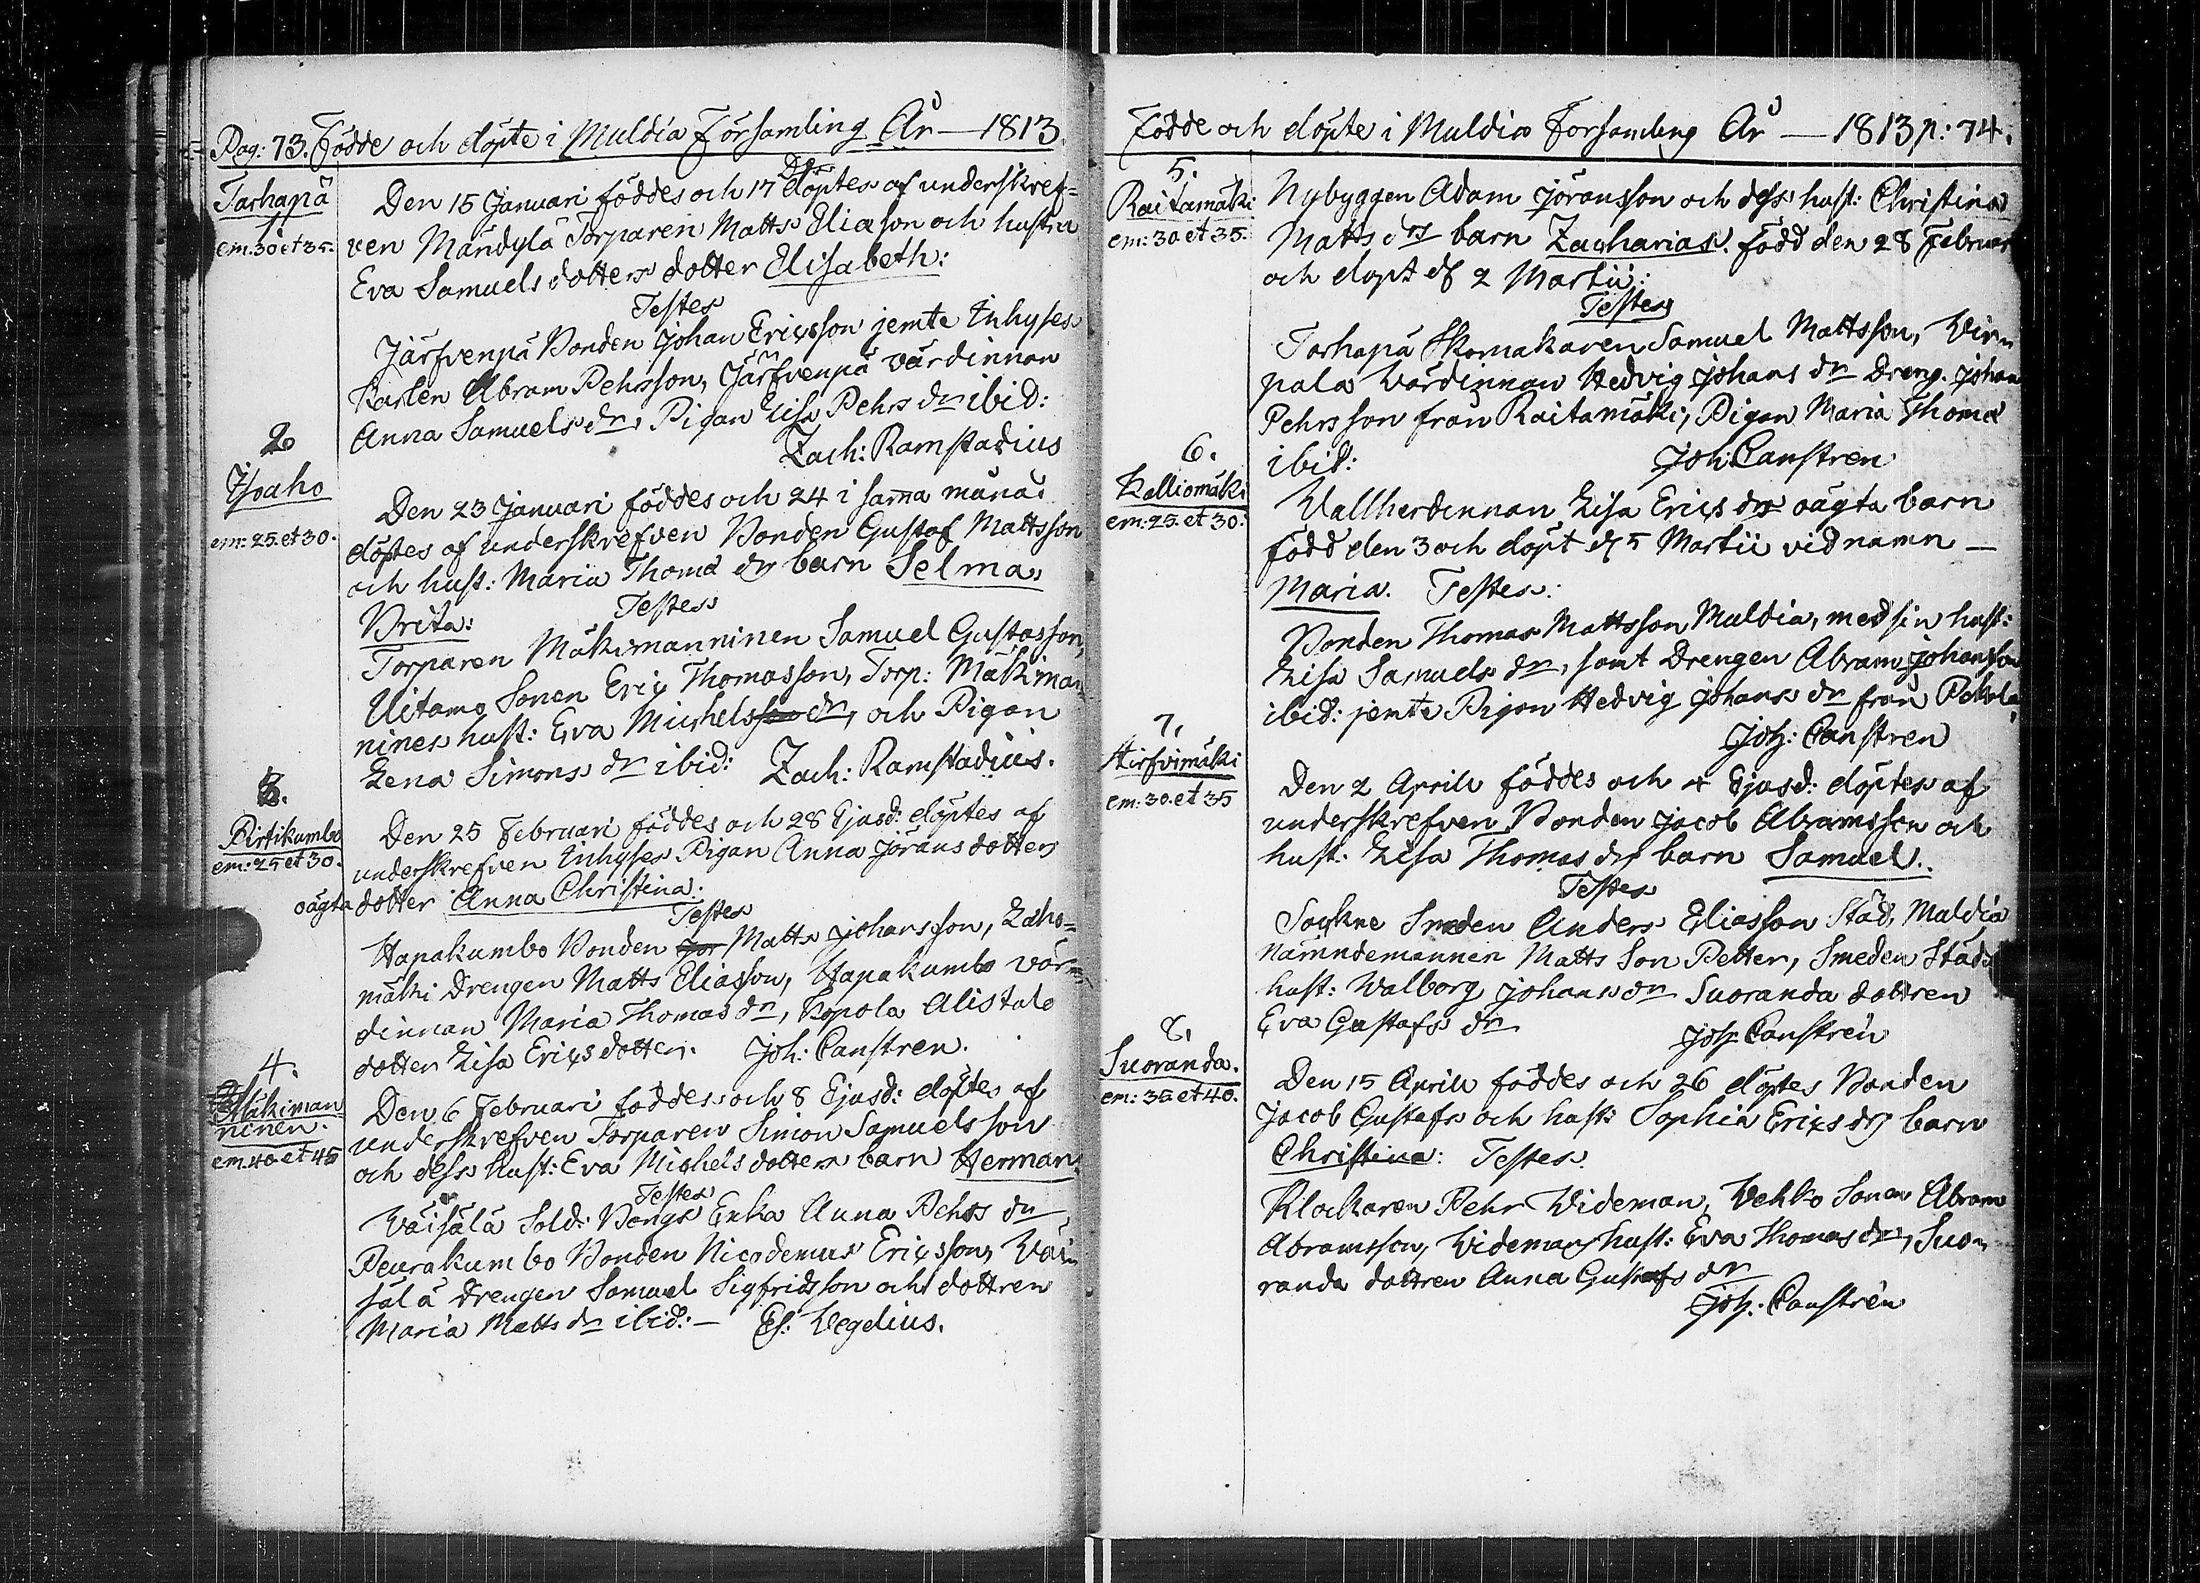 Pag: 73. Födde och döpte i Muldia Församling År — 1813
Tarhapä
1.
em: 30 et 35.
Den 15 Januari föddes och 17 döptes af underskref-
ven Mändylä Torparen Matts Eliasson och hustru
Eva Samuels dotters dotter Elisabeth:
Testes
Järfvenpä Bonden Johan Ericsson jemte Inhyses
Karlen Abram Pehrsson, Järfvenpä värdinnan
Anna Samuels dr, Pigan Lisa Pehrs dr ibid:
Zach: Ramstadius
2
Isoaho
em: 25 et 30.
Den 23 Januari föddes och 24 i samma månad
döptes af underskrefven Bonden Gustaf Mattsson
och hust: Maria Thomæ drs barn Selma
Brita:
Testes
Torparen Mäkimanninen Samuel Gustafsson,
Uitamo Sonen Eric Thomasson, Torp: Mäkiman-
nines hust: Eva Michelsson dr, och Pigan
Lena Simons dr ibid: Zach: Ramstadius.
3.
Pirtikumbo
em: 25 et 30.
Den 25 Februari föddes och 28 Ejusd: döptes af
underskrefven Inhyses Pigan Anna Jörans dotters
oägta dotter Anna Christina.
Testes
Hapakumbo Bonden Jor Matts Johansson, Laho-
mäki Drengen Matts Eliasson, Hapakumbo vär-
dinnan Maria Thomas dr, Kopola Alistalo
dotter Lisa Erics dotter. Joh: Canstren.
4.
Mäkiman-
ninen.
em: 40 et 45
Den 6 Februari föddes och 8 Ejusd: döptes af
underskrefven Torparen Simon Samuelsson
och dess hust: Eva Michels dotters barn Herman.
Testes
Väisälä Sold: Bongs Enka Anna Pehrs dr,
Peurakumbo Bonden Nicodemus Ericsson, Väi-
sälä Drengen Samuel Sigfridsson och dottren
Maria Matts dr ibid:— Es: Wegelius.
Födde och döpte i Muldia Forsamling År — 1813 p: 74.
5.
Raitamäki
em: 30 et 35.
Nybyggen Adam Jöransson och dess hust: Christina
Matts drs barn Zacharias. född den 28 Februar
och döpt d 2 Martii:
Testes
Tarhapä Skomakaren Samuel Mattsson, Vir-
pala Värdinnan Hedvig Johans dr Dreng. Johan
Pehrsson från Raitamäki, Pigan Maria Thomæ
ibid: Joh: Canstren
6.
Kalliomäki
em: 25. et 30.
Vallherdinnan Lisa Erics drs oägta barn
född den 3 och döpt d 5 Martii vid namn —
Maria. Testes:
Bonden Thomas Mattsson Muldia, med sin hust:
Lisa Samuels dr, samt Drengen Abram Johansson
ibid: jemte Pigan Hedvig Johans dr från Pohola,
Joh: Canstren
7.
Hirfvimäki
em: 30. et 35
Den 2 Aprill föddes och 4 Ejusd: döptes af
underskrefven Bonden Jacob Abramsson och
hust: Lisa Thomas drs barn Samuel.
Testes
Sockne Smeden Anders Eliasson Städ, Muldia
Nämndemannen Matts Son Petter, Smeden Städs
hust: Walborg Johans dr Suoranda dottren
Eva Gustafs dr Joh: Canstrén
8.
Suoranda.
em: 35 et 40.
Den 15 Aprill föddes och 26 döptes Bonden
Jacob Gustafs och hust: Sophia Erics drs barn
Christina: Testes.
Klockaren Pehr Wideman, Vehko Sonen Abram
Abramsson, Widemans hust: Eva Thomas dr, Suo-
randa dottren Anna Gustafs dr
Joh: Canstrén